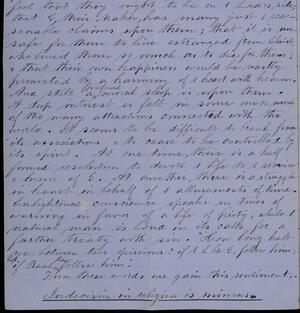 feel that they ought to be on t Lord's side,
that G, their Maker, has many just & rea-
sonable claims upon them; that it is un-
safe for them to live estranged from Christ
who loved them so much as to die for them;
& that their own happiness would be vastly
promoted by a harmony of t heart with heaven.
And still a moral sleep is upon them.
A deep interest is felt in some one or more
of the many attractions connected with the
world. It seems to be difficult to break from
its associations & to cease to be controlled by
its spirit. At one time, there is a half
formed resolution to devote t life to t service
of G. At another, there is a struggle
in heart in behalf of t allurements of time.
Enlightened conscience speaks in tones of
warning in favor of a life of piety, while t
natural man is loud in its calls for a
farther treaty with sin. How long halt
ye between two opinions: if t L be G, follow him;
if Baal, then follow him.
From these words we gain this sentiment;
Indecision in religion is